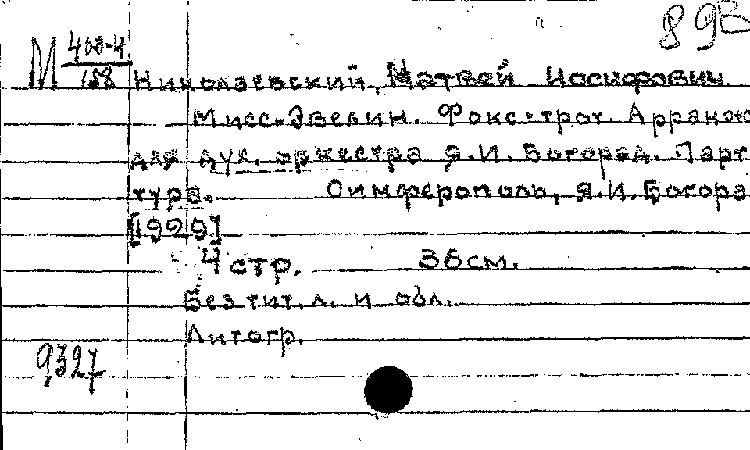 89
М 400-4
158 Николаевский, Матвей Иосифович
Мисс-Эвелин. Фокс-трот. Арранж
для дух. оркестра Я.И. Богорад. Парт
тура. Симферополь, Я.И. Богора
[1929]
4 стр. 36см.
Без тит. л. и обл.
Литогр.
9327